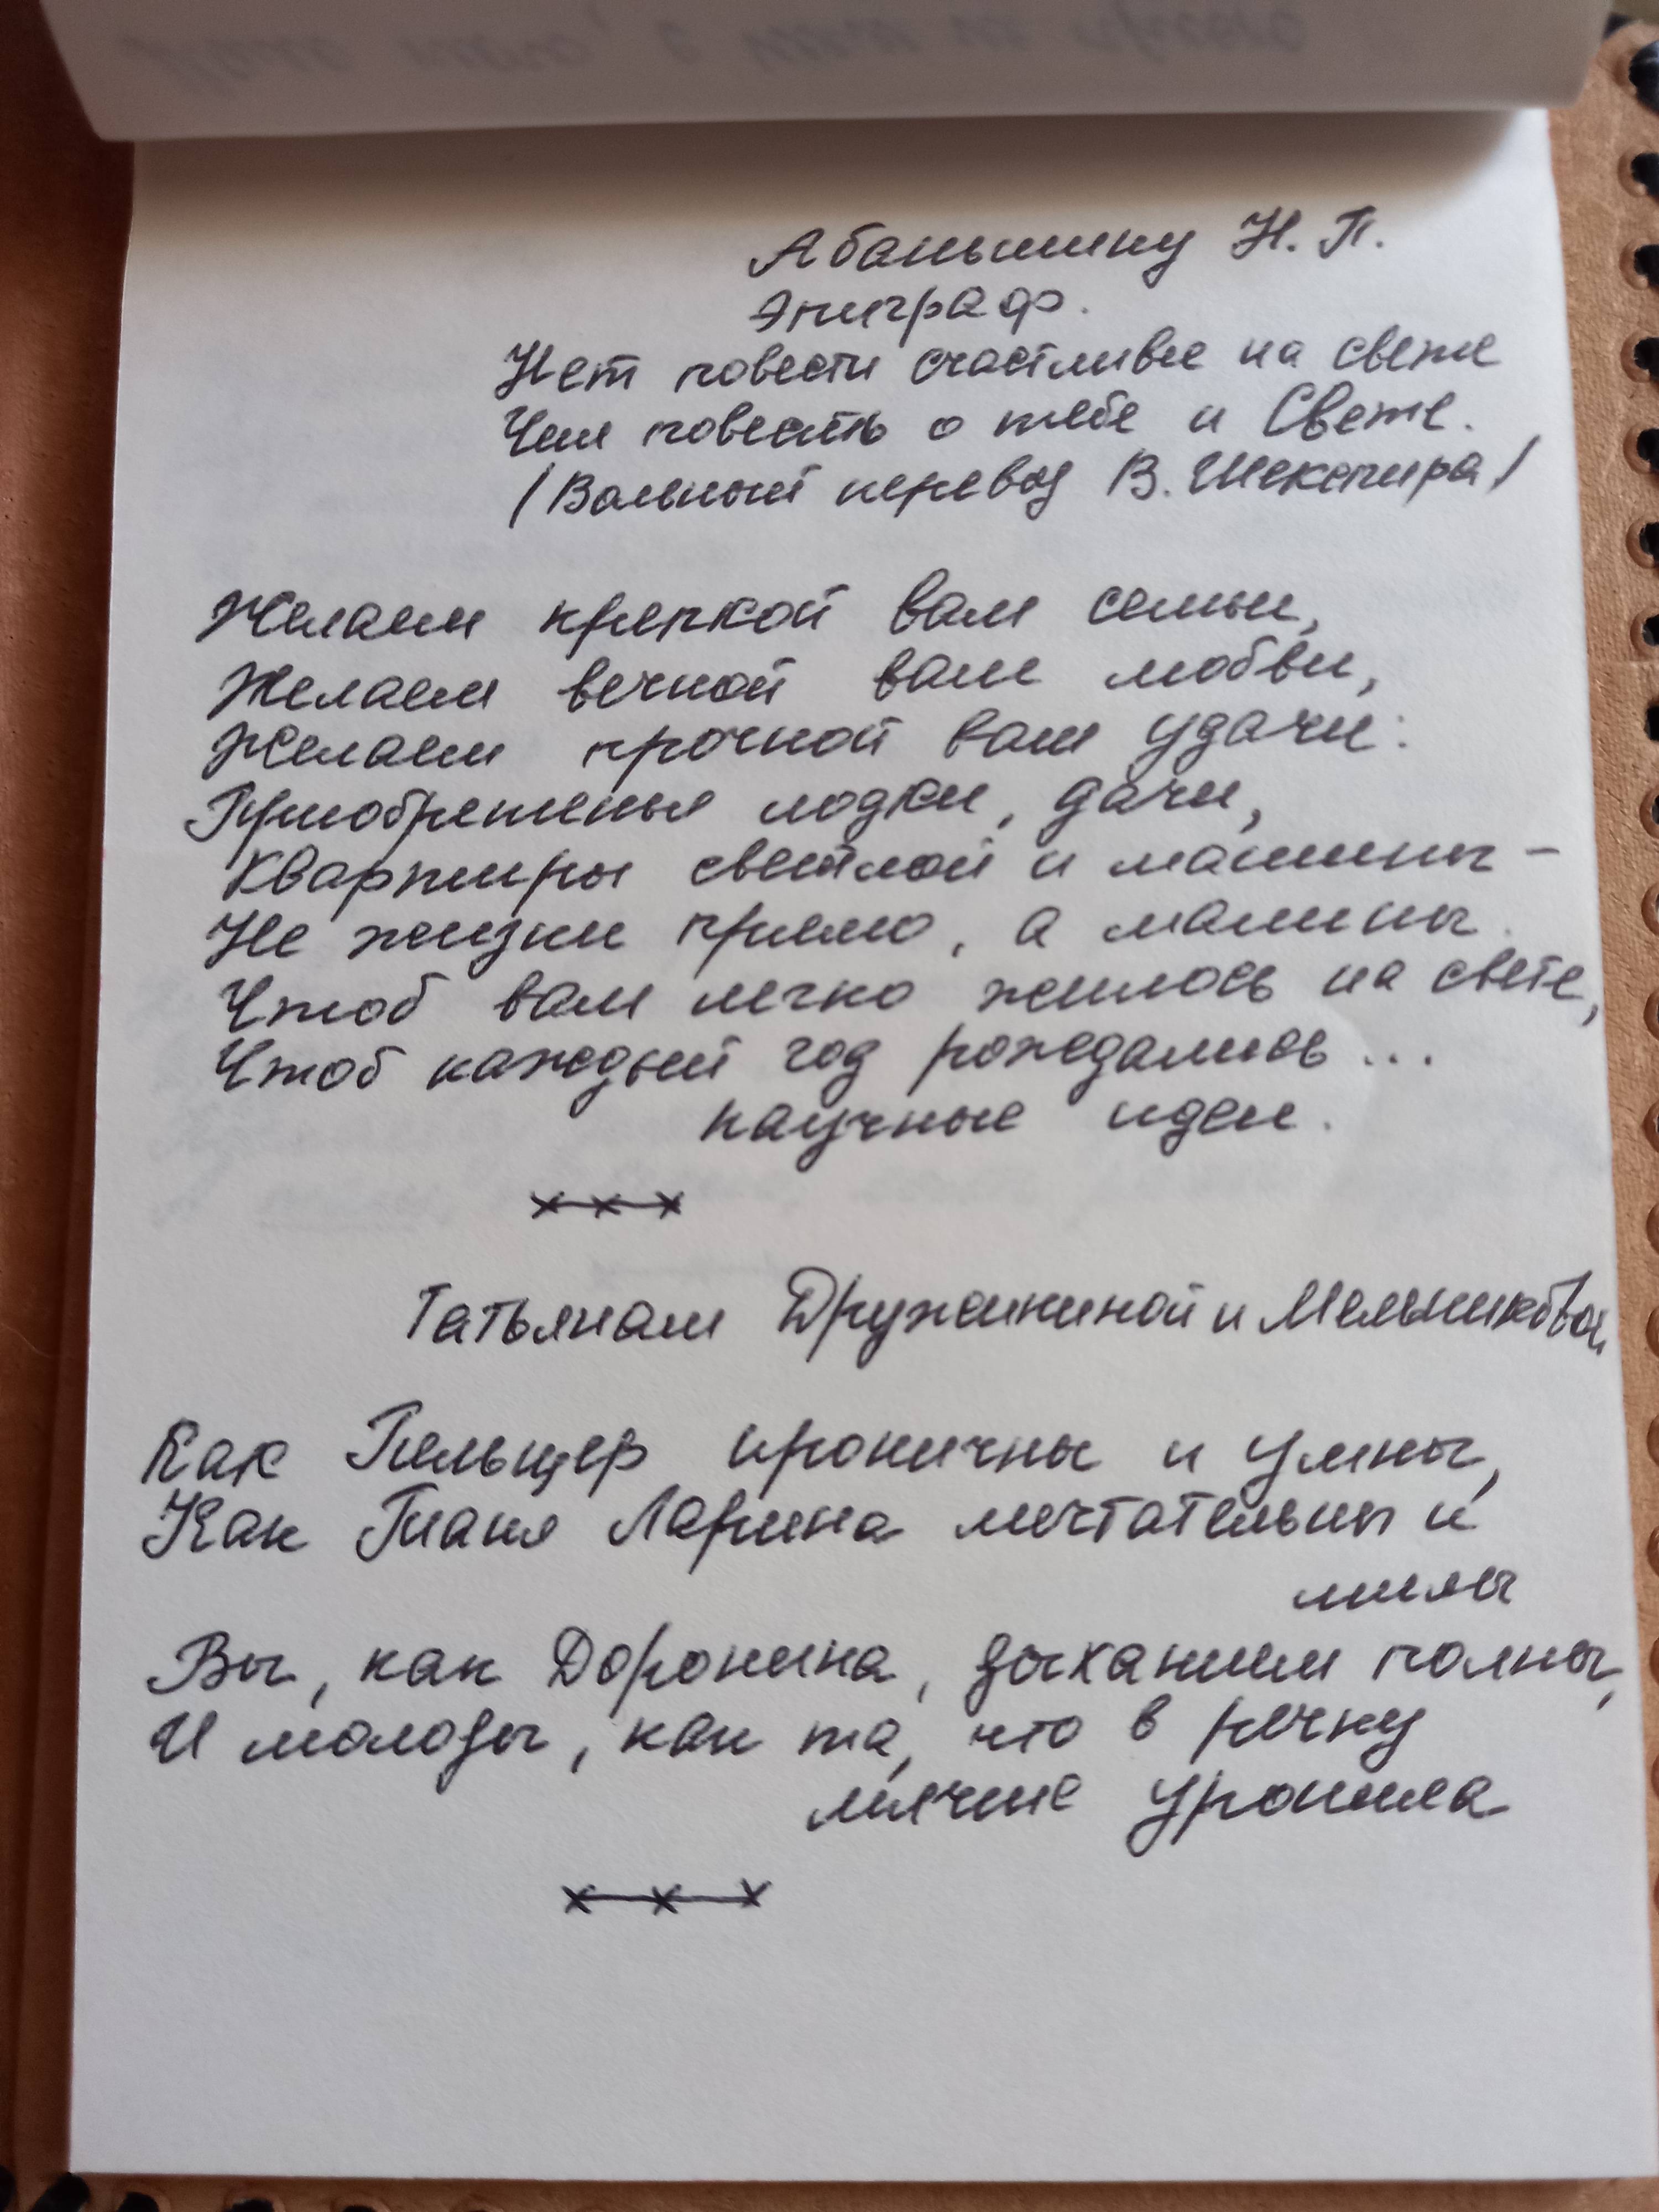 Абаньшину Н. П.
Эпиграф.
Нет повести счастливее на свете
Чем повесть о тебе и Свете.
/Вольный перевод В. Шекспира/
Желаем крепкой вам семьи,
Желаем вечной вам любви,
Желаем прочной вам удачи:
Приобретенья лодки, дачи,
Квартиры светлой и машины –
Не жизни прямо, а малины.
Чтоб вам легко жилось на свете,
Чтоб каждый год рождались...
научные идеи.
Татьянам Дружининой и Мельниковой
Как Пельцер ироничны и умны,
Как Таня Ларина мечтательны и
милы
Вы, как Доронина, дыханием полны,
И молоды, как та, что в речку
мячик уронила